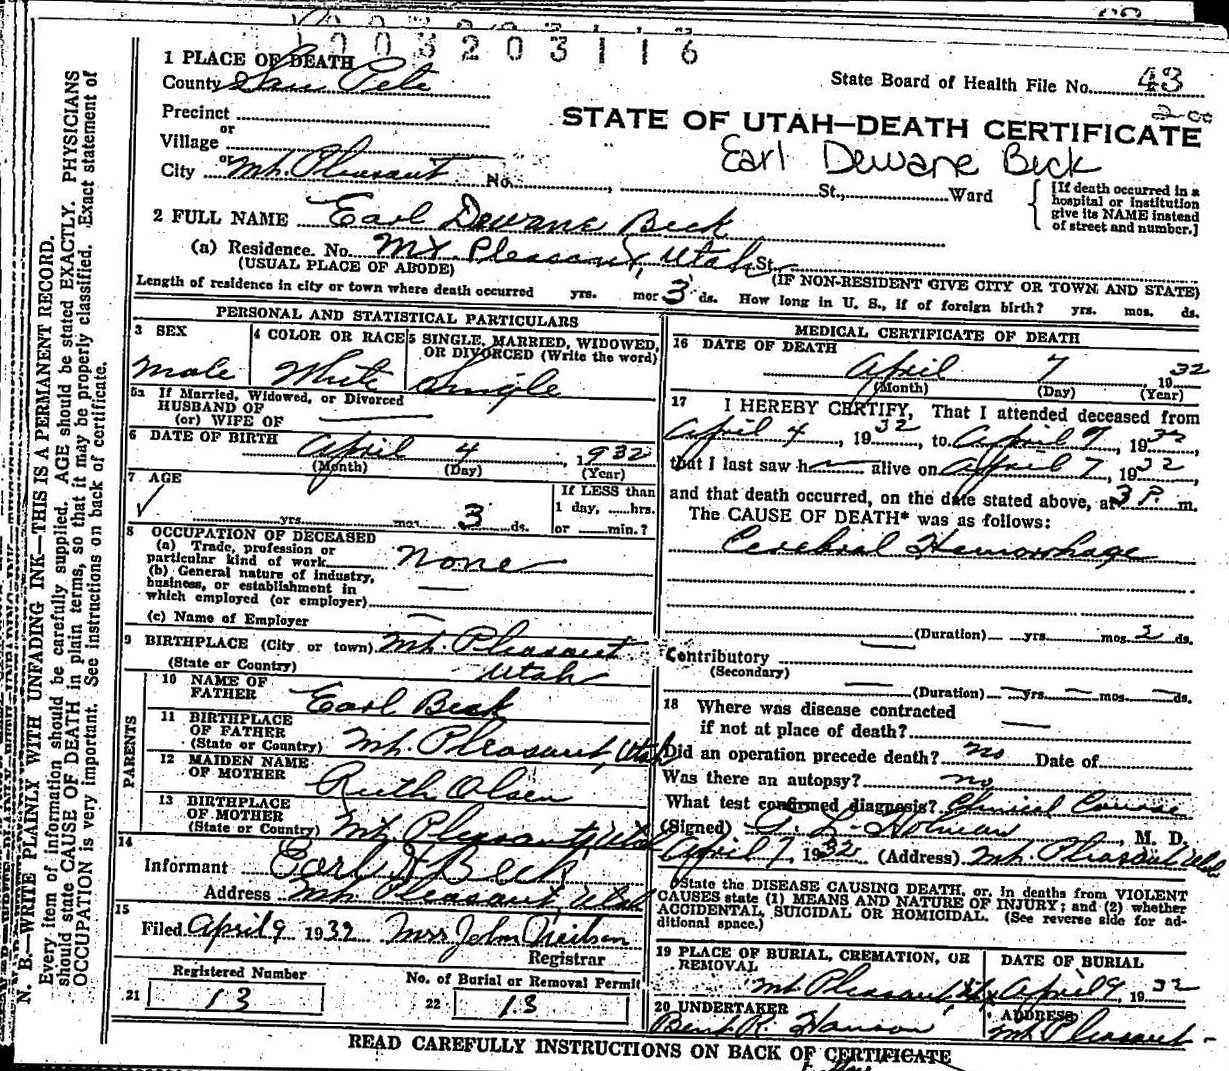 1003203116
1 PLACE OF DEATH
County San Pete
State Board of Health File No. 43
2-00
Precinct
or
Village
or
City Mt. Pleasant No. St., Ward
STATE OF UTAH—DEATH CERTIFICATE
Earl Dewane Beck
[If death occurred in a
hospital or institution
give its NAME instead
of street and number.]
2 FULL NAME Earl Dewane Beck
(a) Residence. No. Mt Pleasant, Utah St.
(USUAL PLACE OF ABODE) (IF NON-RESIDENT GIVE CITY OR TOWN AND STATE)
Length of residence in city or town where death occurred yrs. mos 3 ds. How long in U. S., if of foreign birth? yrs. mos. ds.
PERSONAL AND STATISTICAL PARTICULARS
3 SEX
Male
4 COLOR OR RACE
White
5 SINGLE, MARRIED, WIDOWED,
OR DIVORCED (Write the word)
Single
5a If Married, Widowed, or Divorced
HUSBAND OF
(or) WIFE OF
6 DATE OF BIRTH
April 4, 1932
(Month) (Day) (Year)
7 AGE
yrs. mos. 3 ds.
If LESS than
1 day, hrs.
or min.?
8 OCCUPATION OF DECEASED
(a) Trade, profession or
particular kind of work None
(b) General nature of industry,
business, or establishment in
which employed (or employer)
(c) Name of Employer
9 BIRTHPLACE (City or town) Mt. Pleasant
(State or Country) Utah
PARENTS
10 NAME OF
FATHER Earl Beck
11 BIRTHPLACE
OF FATHER
(State or Country) Mt. Pleasant, Utah
12 MAIDEN NAME
OF MOTHER Ruth Olsen
13 BIRTHPLACE
OF MOTHER
(State or Country) Mt. Pleasant, Utah
14
Informant Earl Beck
Address Mt. Pleasant, Utah
15
Filed April 9 1932 Mrs John Neilson
Registrar
Registered Number
21 13
No. of Burial or Removal Permit
22 13
MEDICAL CERTIFICATE OF DEATH
16 DATE OF DEATH
April 7, 1932
(Month) (Day) (Year)
17 I HEREBY CERTIFY, That I attended deceased from
April 4, 1932, to April 7, 1932,
that I last saw h alive on April 7, 1932,
and that death occurred, on the date stated above, at 3 P. m.
The CAUSE OF DEATH* was as follows:
Cerebral Hemorrhage
(Duration) yrs. mos. 2 ds.
Contributory
(Secondary)
(Duration) yrs. mos. ds.
18 Where was disease contracted
if not at place of death?
Did an operation precede death? no Date of
Was there an autopsy? no
What test confirmed diagnosis? Clinical Course
(Signed) Holman, M. D.
April 7, 1932 (Address) Mt. Pleasant Utah
*State the DISEASE CAUSING DEATH, or, in deaths from VIOLENT
CAUSES state (1) MEANS AND NATURE OF INJURY; and (2) whether
ACCIDENTAL, SUICIDAL OR HOMICIDAL. (See reverse side for ad-
ditional space.)
19 PLACE OF BURIAL, CREMATION, OR
REMOVAL
Mt Pleasant
DATE OF BURIAL
April 9, 1932
20 UNDERTAKER
Bent R. Hanson
ADDRESS
Mt Pleasant
READ CAREFULLY INSTRUCTIONS ON BACK OF CERTIFICATE
N. B.—WRITE PLAINLY WITH UNFADING INK—THIS IS A PERMANENT RECORD.
Every item of information should be carefully supplied. AGE should be stated EXACTLY. PHYSICIANS
should state CAUSE OF DEATH in plain terms, so that it may be properly classified. Exact statement of
OCCUPATION is very important. See instructions on back of certificate.